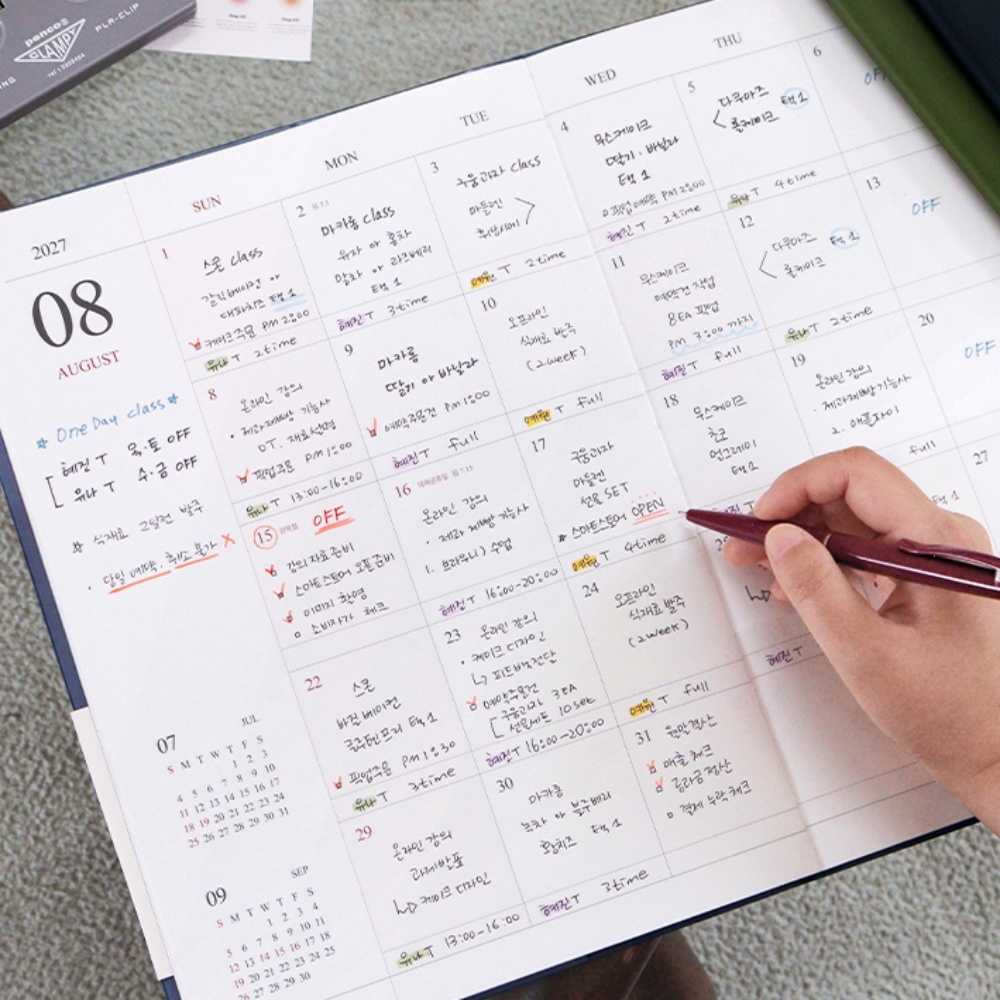 penco®
CLAMPY
PLA-CLIP
SUN
MON
TUE
WED
THU
2027
08
AUGUST
★ One Day class ★
혜진 T 목·토 OFF
유나 T 수·금 OFF
☆ 식재료 2일전 발주
· 당일 예약·취소 불가 X
1
스콘 class
갈릭베이컨 or
대파치즈 택1
케이크주문 PM 2:00
유나 T 2time
2
마카롱 class
유자 or 홍차
말차 or 라즈베리
택1
혜진 T 3time
3
구움과자 class
마들렌
휘낭시에
예원 T 2time
4
무스케이크
딸기·바닐라
택1
픽업예약 PM 2:00
혜진 T 2time
5
다쿠아즈
롤케이크 택1
유나 T 4time
6
OFF
8
온라인 강의
· 제과제빵 기능사
OT. 재료설명
픽업주문 PM 1:00
유나 T 13:00-16:00
9
마카롱
딸기 or 바닐라
예약주문건 PM 1:00
혜진 T full
10
오프라인
식재료 발주
(2week)
예원 T full
11
무스케이크
예약건 작업
8EA 픽업
PM 7:00 까지
혜진 T full
12
다쿠아즈
롤케이크 택1
유나 T 2time
13
OFF
15 광복절 OFF
강의자료준비
스마트스토어 오픈준비
이미지 촬영
소비자가 체크
16
온라인 강의
· 제과제빵 기능사
1. 브라우니 수업
혜진 T 16:00-20:00
17
구움과자
마들렌
선물 SET
* 스마트스토어 OPEN
예원 T 4time
18
무스케이크
초코
얼그레이
택1
혜진 T
19
온라인 강의
· 제과제빵기능사
2. 애플파이
full
20
OFF
22
스콘
바질베이컨
택1
픽업주문 PM 1:30
유나 T 3time
23
온라인 강의
· 케이크 디자인
↳ 피드백전달
예약주문건
구움과자 3EA
선물세트 10set
혜진 T 16:00-20:00
24
오프라인
식재료 발주
(2week)
예원 T full
혜진 T
27
29
온라인 강의
과제발표
↳ 케이크 디자인
유나 T 13:00-16:00
30
마카롱
녹차 or 블루베리
택1
혜진 T 3time
31
월말정산
매출 체크
공과금 정산
결제 누락체크
07
JUL
S M T W T F S
1 2 3
4 5 6 7 8 9 10
11 12 13 14 15 16 17
18 19 20 21 22 23 24
25 26 27 28 29 30 31
09
SEP
S M T W T F S
1 2 3 4
5 6 7 8 9 10 11
12 13 14 15 16 17 18
19 20 21 22 23 24 25
26 27 28 29 30